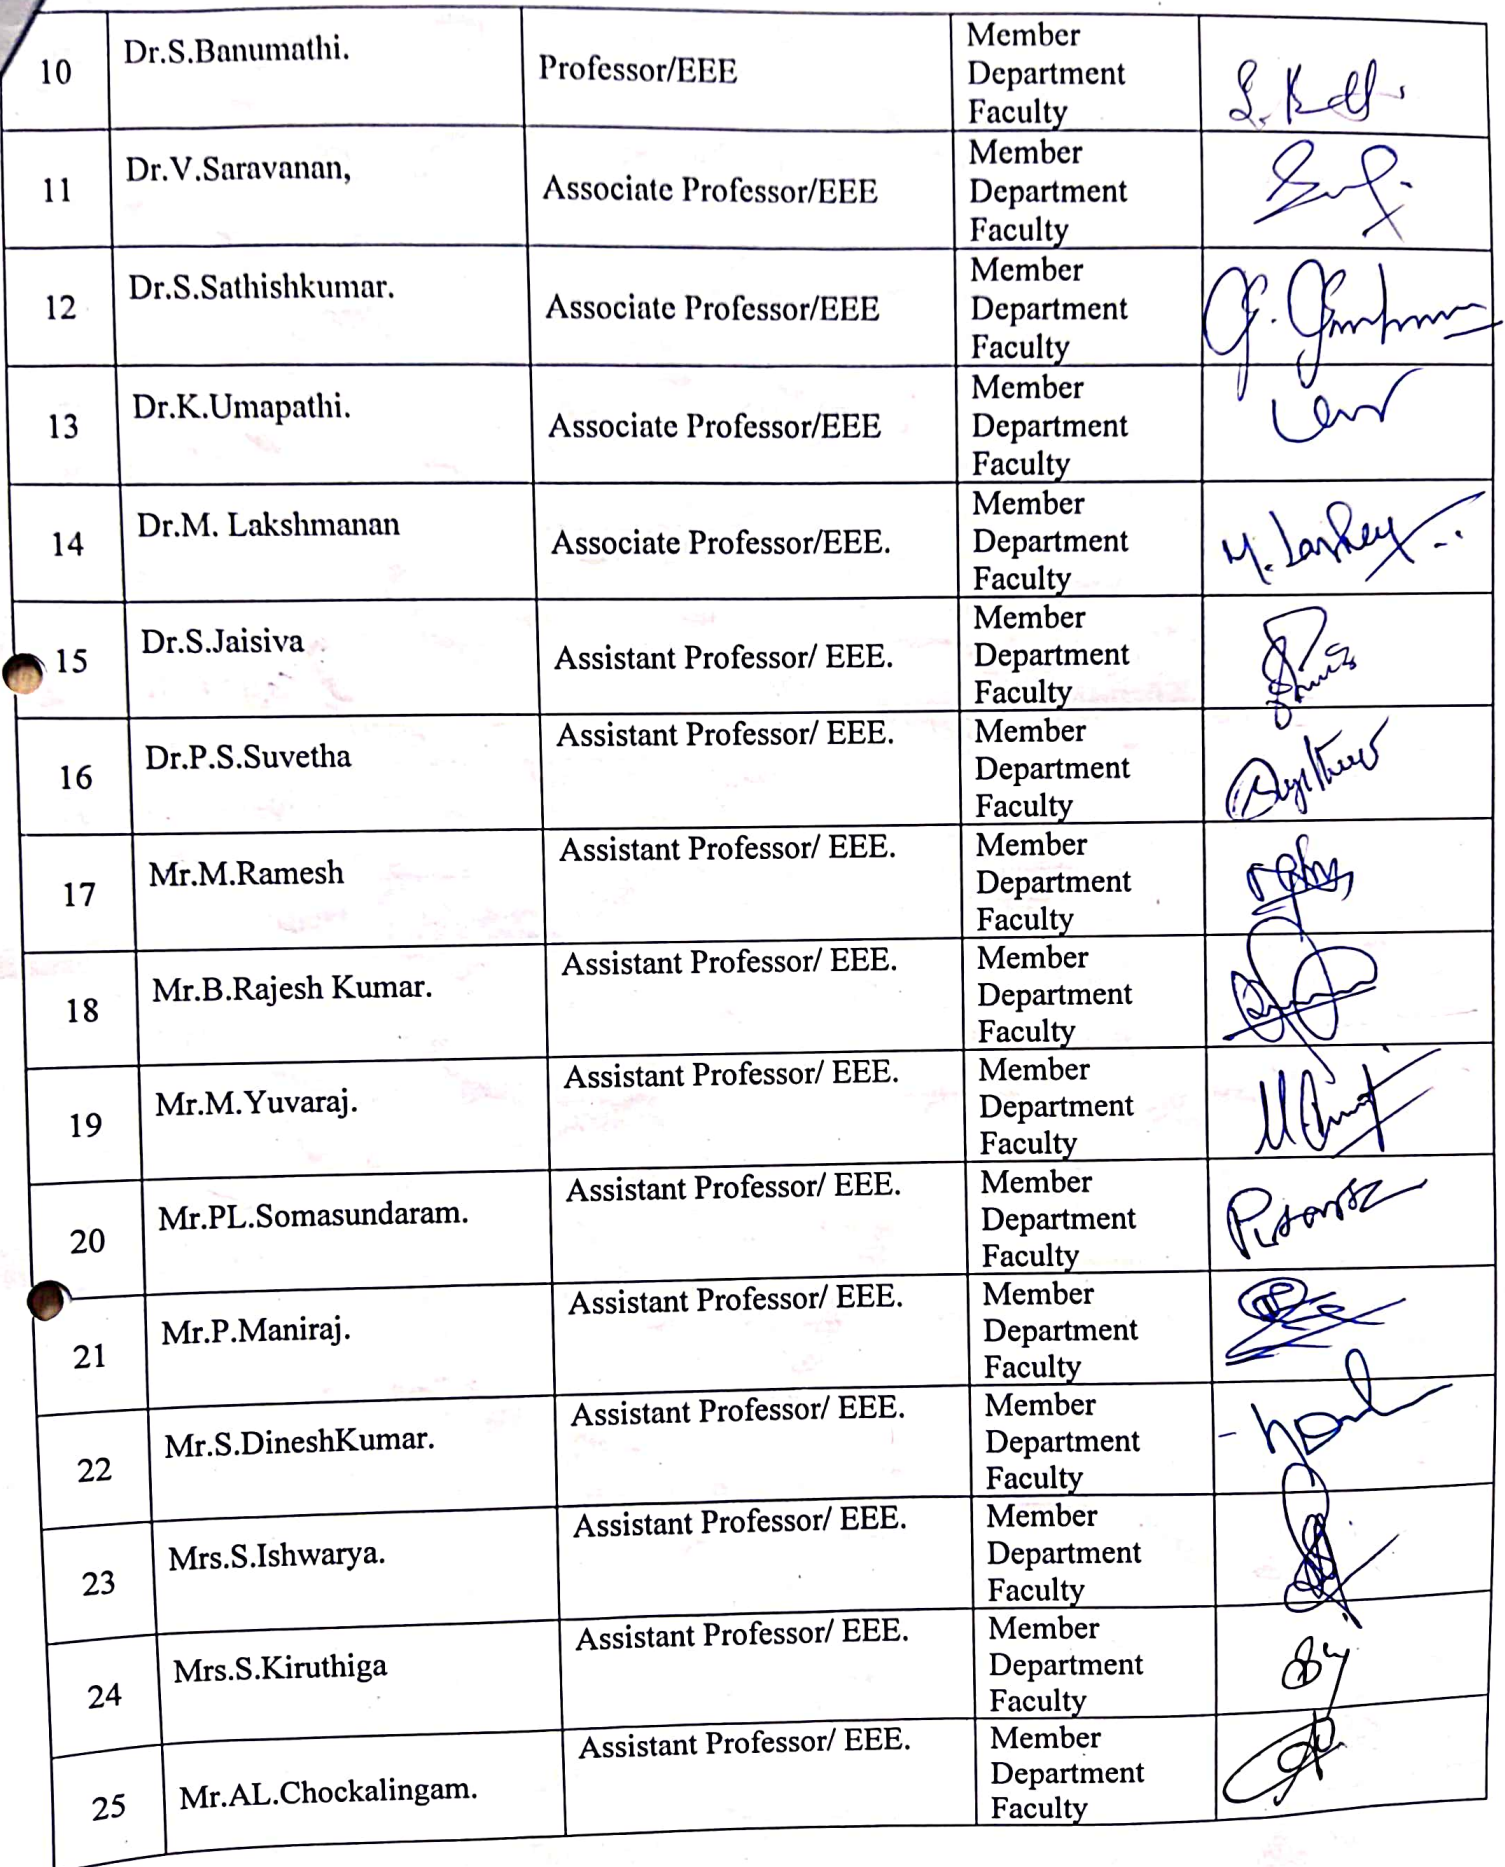 10
Dr.S.Banumathi.
Professor/EEE
Member
Department
Faculty
11
Dr.V.Saravanan,
Associate Professor/EEE
Member
Department
Faculty
12
Dr.S.Sathishkumar.
Associate Professor/EEE
Member
Department
Faculty
13
Dr.K.Umapathi.
Associate Professor/EEE
Member
Department
Faculty
14
Dr.M. Lakshmanan
Associate Professor/EEE.
Member
Department
Faculty
15
Dr.S.Jaisiva
Assistant Professor/ EEE.
Member
Department
Faculty
16
Dr.P.S.Suvetha
Assistant Professor/ EEE.
Member
Department
Faculty
17
Mr.M.Ramesh
Assistant Professor/ EEE.
Member
Department
Faculty
18
Mr.B.Rajesh Kumar.
Assistant Professor/ EEE.
Member
Department
Faculty
19
Mr.M.Yuvaraj.
Assistant Professor/ EEE.
Member
Department
Faculty
20
Mr.PL.Somasundaram.
Assistant Professor/ EEE.
Member
Department
Faculty
21
Mr.P.Maniraj.
Assistant Professor/ EEE.
Member
Department
Faculty
22
Mr.S.DineshKumar.
Assistant Professor/ EEE.
Member
Department
Faculty
23
Mrs.S.Ishwarya.
Assistant Professor/ EEE.
Member
Department
Faculty
24
Mrs.S.Kiruthiga
Assistant Professor/ EEE.
Member
Department
Faculty
25
Mr.AL.Chockalingam.
Assistant Professor/ EEE.
Member
Department
Faculty